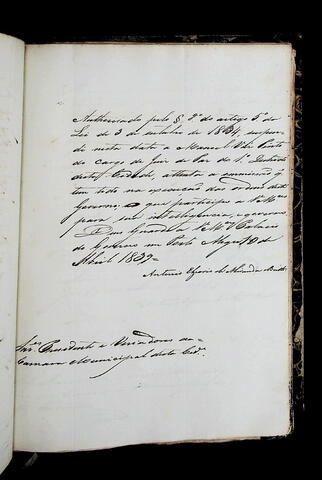 Authorisado pelo § 2º do artigo 5º da
Lei de 3 de outubro de 1834, suspen-
di nesta data a Manoel Pinto
do cargo de Juiz de Paz do 1º Districto
desta Cidade, attenta a ommissão q'
tem tido na execução das ordens deste
Governo, o que participo a Vmces
para sua intelligencia, e governo.
Deos Guarde a Vmces Palacio
do Governo em Porto Alegre de
Abril 1837=
Antonio de Miranda
Snres Presidente e Vereadores da
Camara Municipal desta Cide.